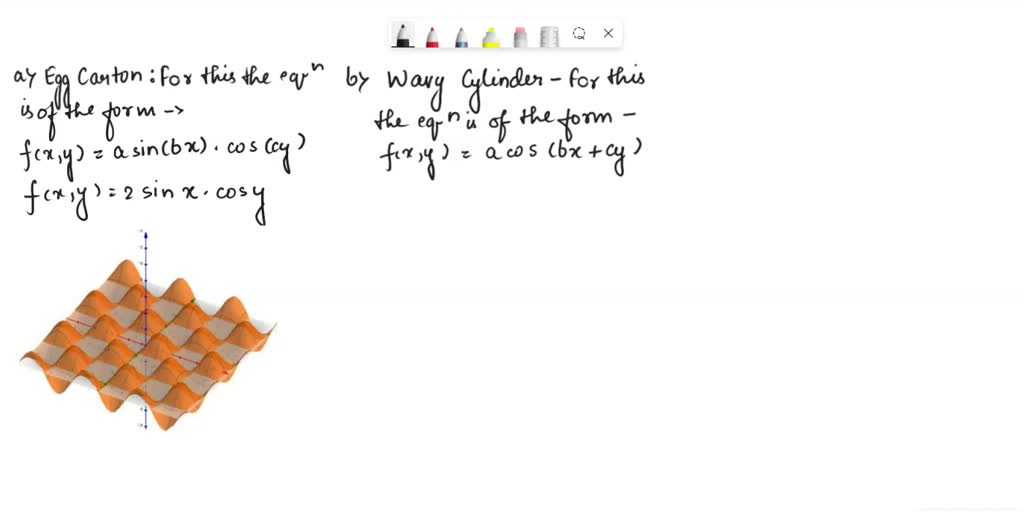 a) Egg Carton : For this the eqⁿ
is of the form →
f(x,y) = a sin(bx) · cos(cy)
f(x,y) = 2 sin x · cos y
b) Wavy Cylinder – For this
the eqⁿ is of the form –
f(x,y) = a cos (bx + cy)